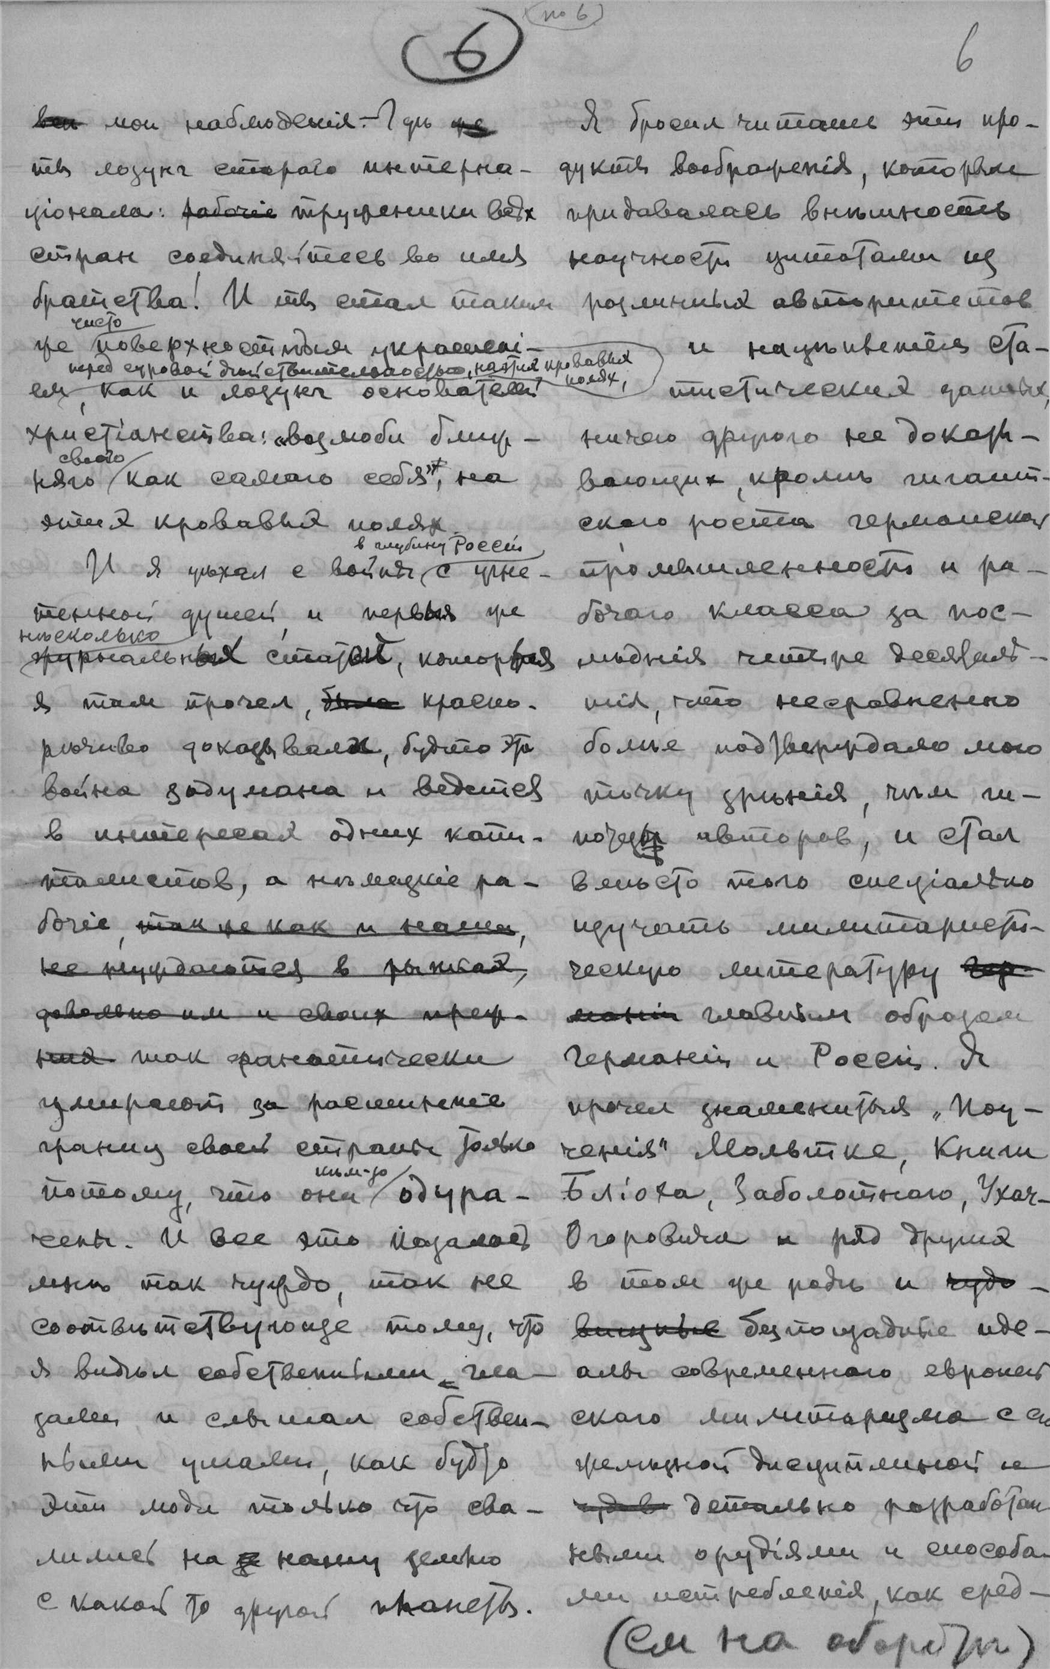 (по 6)
6
6
мои наблюденія. Гдѣ
ты лозунг стараго интерна-
ціонала: рабочіе труженики всѣх
стран соединяйтесь во имя
братства! И ты стал таким
чисто
же поверхностным украшені-
перед суровой дѣйствительностью, на этих кровавых
полях,
ем, как и лозунг основателя
христіанства: „возлюби ближ-
своего
няго как самого себя", на
этих кровавых полях.
в глубину Россіи
И я уѣхал с войны с угне-
тенной душей, и первыя же
нѣсколько
журнальных статей, которыя
я там прочел, была красно-
рѣчиво доказывали, будто эта
война задумана и ведется
в интересах одних капи-
талистов, а нѣмецкіе ра-
бочіе, так же как и наши,
не нуждаются в рынках,
довольно им и своих преж-
них так фанатически
умирают за расширеніе
границ своей страны только
кѣм-то
потому, что они одура-
чены. И все это казалось
мнѣ так чуждо, так не
соотвѣтствующе тому, что
я видѣл собственными гла-
зами и слышал собствен-
ными ушами, как будто
эти люди только что сва-
лились на нашу землю
с какой то другой планеты.
Я бросил читать эти про-
дукты воображенія, которым
придавалась внѣшность
научности цитатами из
различных авторитетов
и нацѣпивается ста-
тистических данных,
ничего другого не доказы-
вающих, кромѣ гигант-
скаго роста германской
промышленности и ра-
бочаго класса за пос-
лѣднія четыре десятилѣ-
тія, что несравненно
болѣе подтверждало мою
точку зрѣнія, чѣм ги-
потезы авторов, и стал
вмѣсто того спеціально
изучать милитаристи-
ческую литературу гер-
маніи главным образом
Германіи и Россіи. Я
прочел знаменитыя „Поу-
ченія" Мольтке, Книги
Бліоха, Заболотнаго, Ухач-
Огоровича и ряд других
в том же родѣ и чудо-
вищные безпощадные иде-
алы современнаго европей
скаго милитаризма с его
желѣзной дисциплиной и
детально разработан
ными орудіями и способа-
ми истребленія, как сред-
(См на оборотѣ)